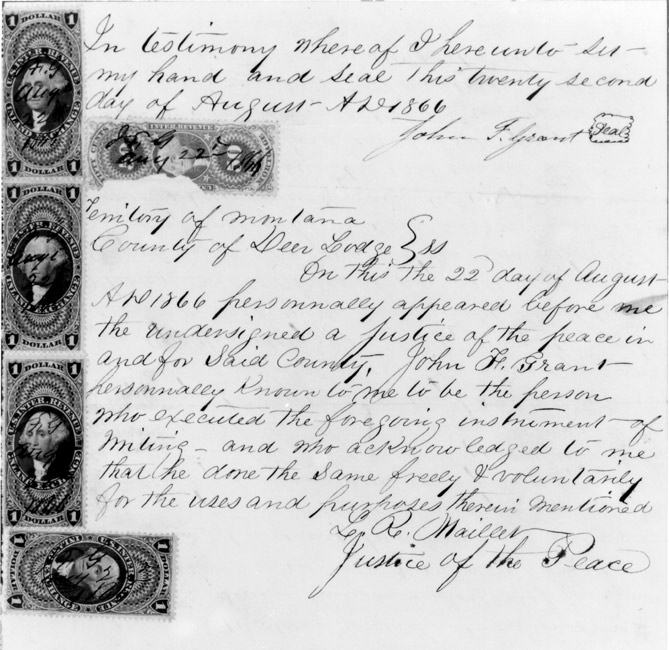 In testimony whereof I hereunto set
my hand and seal this twenty second
day of August A D 1866
John F. Grant Seal
Aug 22d 1866
Teritory of montana
County of Deer Lodge } ss
On this the 22d day of August
A D 1866 personnally appeared before me
the undersigned a Justice of the peace in
and for Said County, John F. Grant
personnally Known to me to be the person
who executed the foregoing instrument of
Writing – and who acknowledged to me
that he done the Same freely & voluntarily
for the uses and purposes therein mentioned
L. R. Maillet
Justice of the Peace
1 DOLLAR 1
U.S. INTER. REVENUE
1 DOLLAR 1
1 DOLLAR 1
U.S. INTER. REVENUE
1 DOLLAR 1
1 DOLLAR 1
U.S. INTER. REVENUE
1 DOLLAR 1
1 DOLLAR 1
U.S. INTER. REV
1 DOLLAR 1
INTER REVENUE